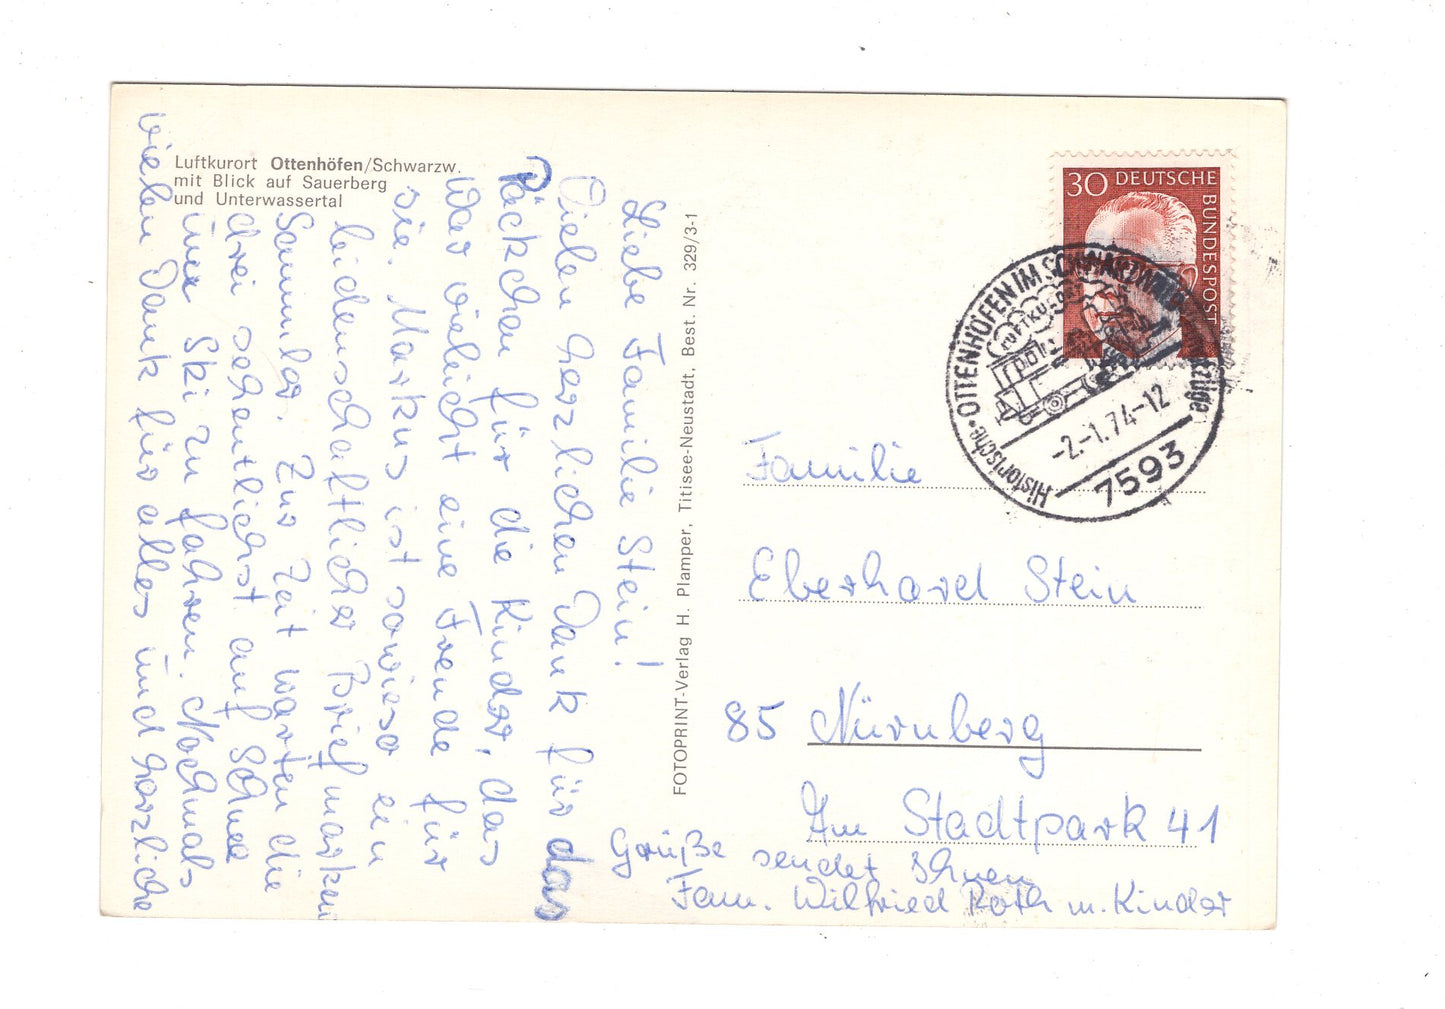 Luftkurort Ottenhöfen/Schwarzw.
mit Blick auf Sauerberg
und Unterwassertal
Liebe Familie Stein!
Vielen herzlichen Dank für das
Päckchen für die Kinder, das
war vieleicht eine Freude für
sie. Markus ist sowieso ein
leidenschaftlicher Briefmarken
Sammler. Zur Zeit warten die
drei sehentlichst auf Schnee
um Ski zu fahren. Nochmals
vielen Dank für alles und herzliche
Grüße sendet Ihnen
Fam. Wilfried Roth m. Kinder
FOTOPRINT-Verlag H. Plamper, Titisee-Neustadt, Best. Nr. 329/3-1
30 DEUTSCHE
BUNDESPOST
OTTENHÖFEN IM SCHWARZWALD
LUFTKURORT
Historische
-2.-1.74-12
7593
Familie
Eberhard Stein
85 Nürnberg
Am Stadtpark 41